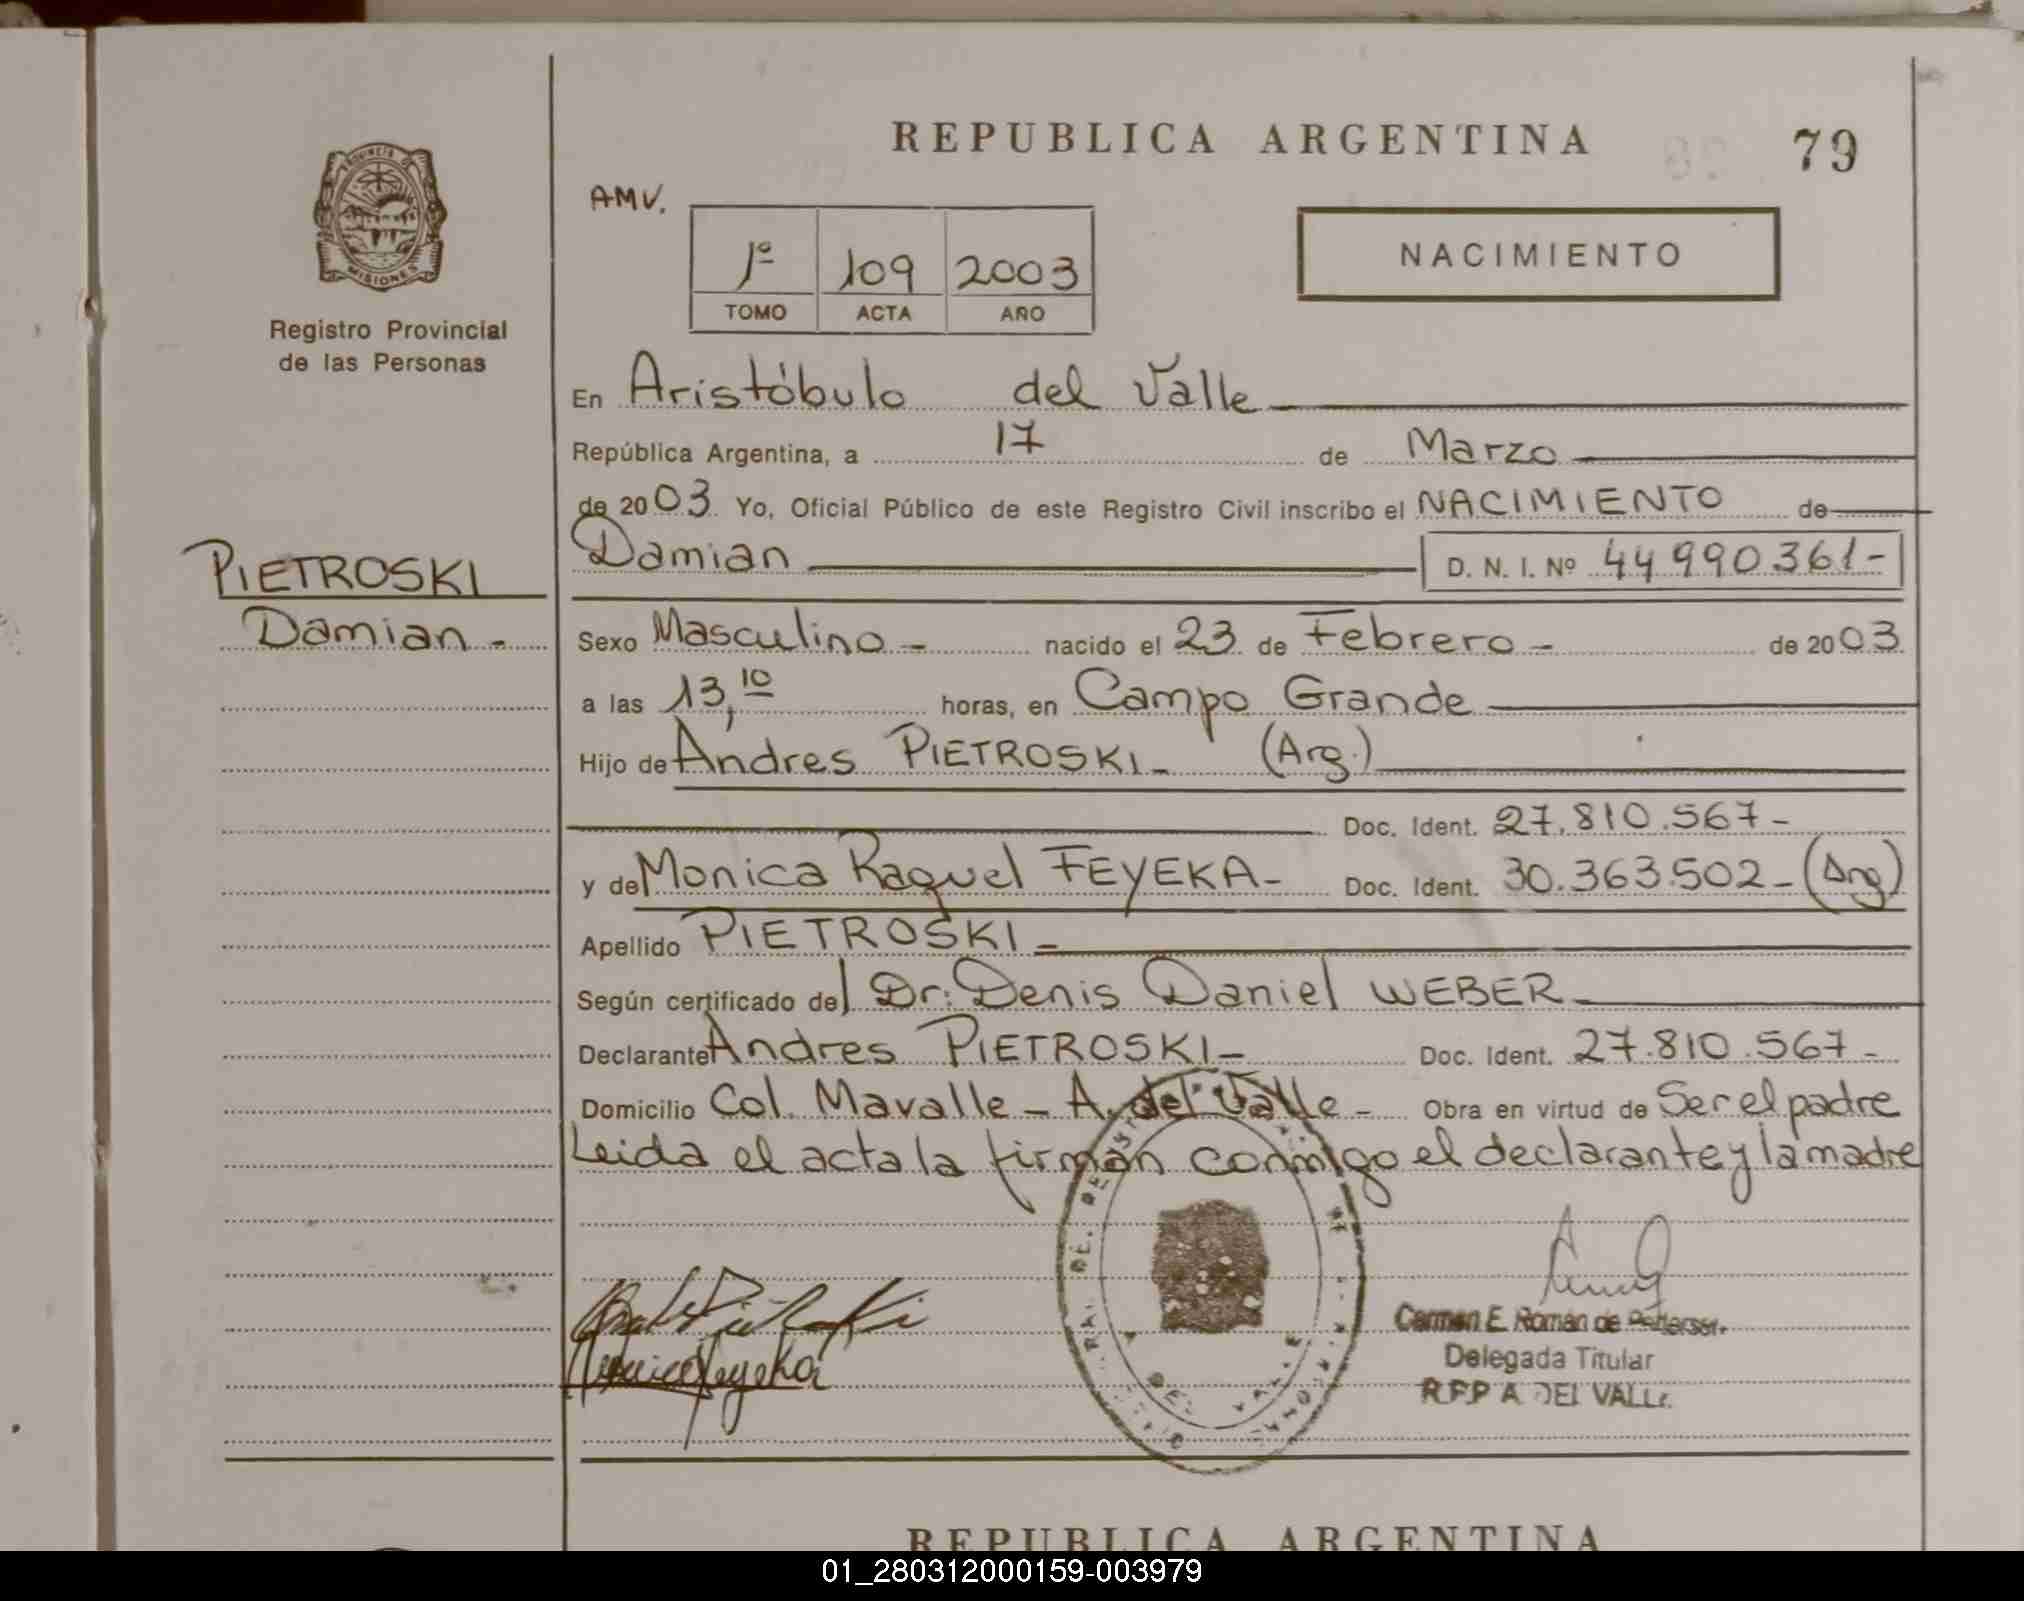 REPUBLICA ARGENTINA 79
AMV.
1º 109 2003
TOMO ACTA AÑO
NACIMIENTO
PROVINCIA DE
MISIONES
Registro Provincial
de las Personas
En Aristóbulo del Valle
República Argentina, a 17 de Marzo
de 2003 Yo, Oficial Público de este Registro Civil inscribo el NACIMIENTO de
Damian D. N. I. Nº 44 990 361-
PIETROSKI
Damian -
Sexo Masculino - nacido el 23 de Febrero - de 2003
a las 13,10 horas, en Campo Grande
Hijo de Andres PIETROSKI - (Arg.)
Doc. Ident. 27.810.567 -
y de Monica Raquel FEYEKA - Doc. Ident. 30.363.502 - (Arg)
Apellido PIETROSKI -
Según certificado del Dr. Denis Daniel WEBER
Declarante Andres PIETROSKI - Doc. Ident. 27.810.567 -
Domicilio Col. Mavalle - A. del Valle - Obra en virtud de Ser el padre
Leida el acta la firman conmigo el declarante y la madre
Carmen E. Román de
Delegada Titular
R.P.P A DEL VALLE
REPUBLICA ARGENTINA
01_280312000159-003979